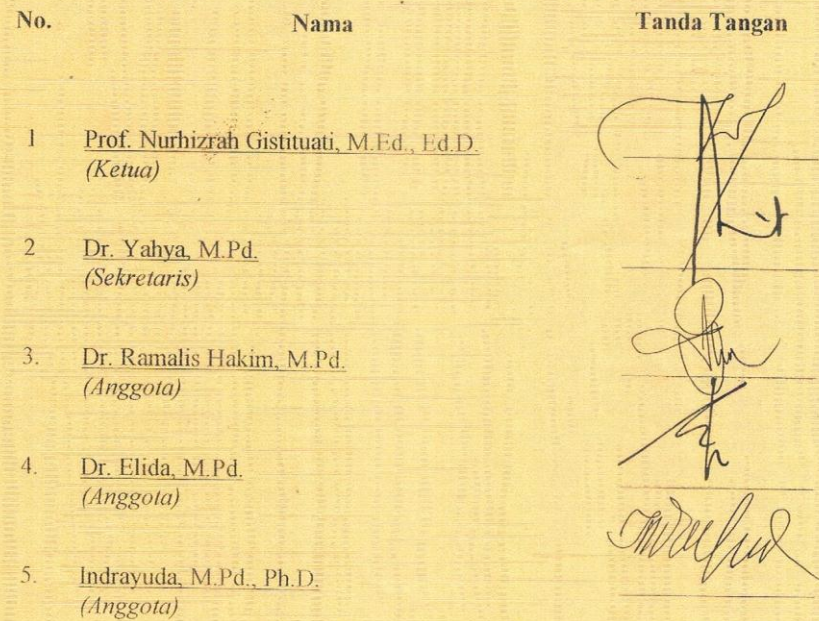 No. Nama Tanda Tangan
1 Prof. Nurhizrah Gistituati, M.Ed., Ed.D.
(Ketua)
2 Dr. Yahya, M.Pd.
(Sekretaris)
3. Dr. Ramalis Hakim, M.Pd.
(Anggota)
4. Dr. Elida, M.Pd.
(Anggota)
5. Indrayuda, M.Pd., Ph.D.
(Anggota)